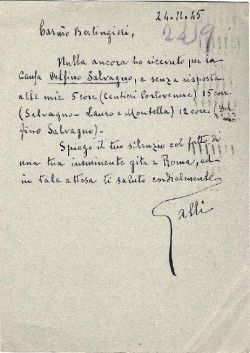 24.11.45
2459
Carmo Berlengiere,
Nulla ancora ho ricevuto per la
causa Delfino Salvagno, e senza risposta
alle mie 5 corr (Cantieri Portovenere) 15 corr.
(Salvagno - Lauro e Montella) 12 corr. (Del
fino Salvagno) -
Spiego il tuo silenzio col fatto di
una tua imminente gita a Roma, ed
in tale attesa ti saluto cordialmente
Galli